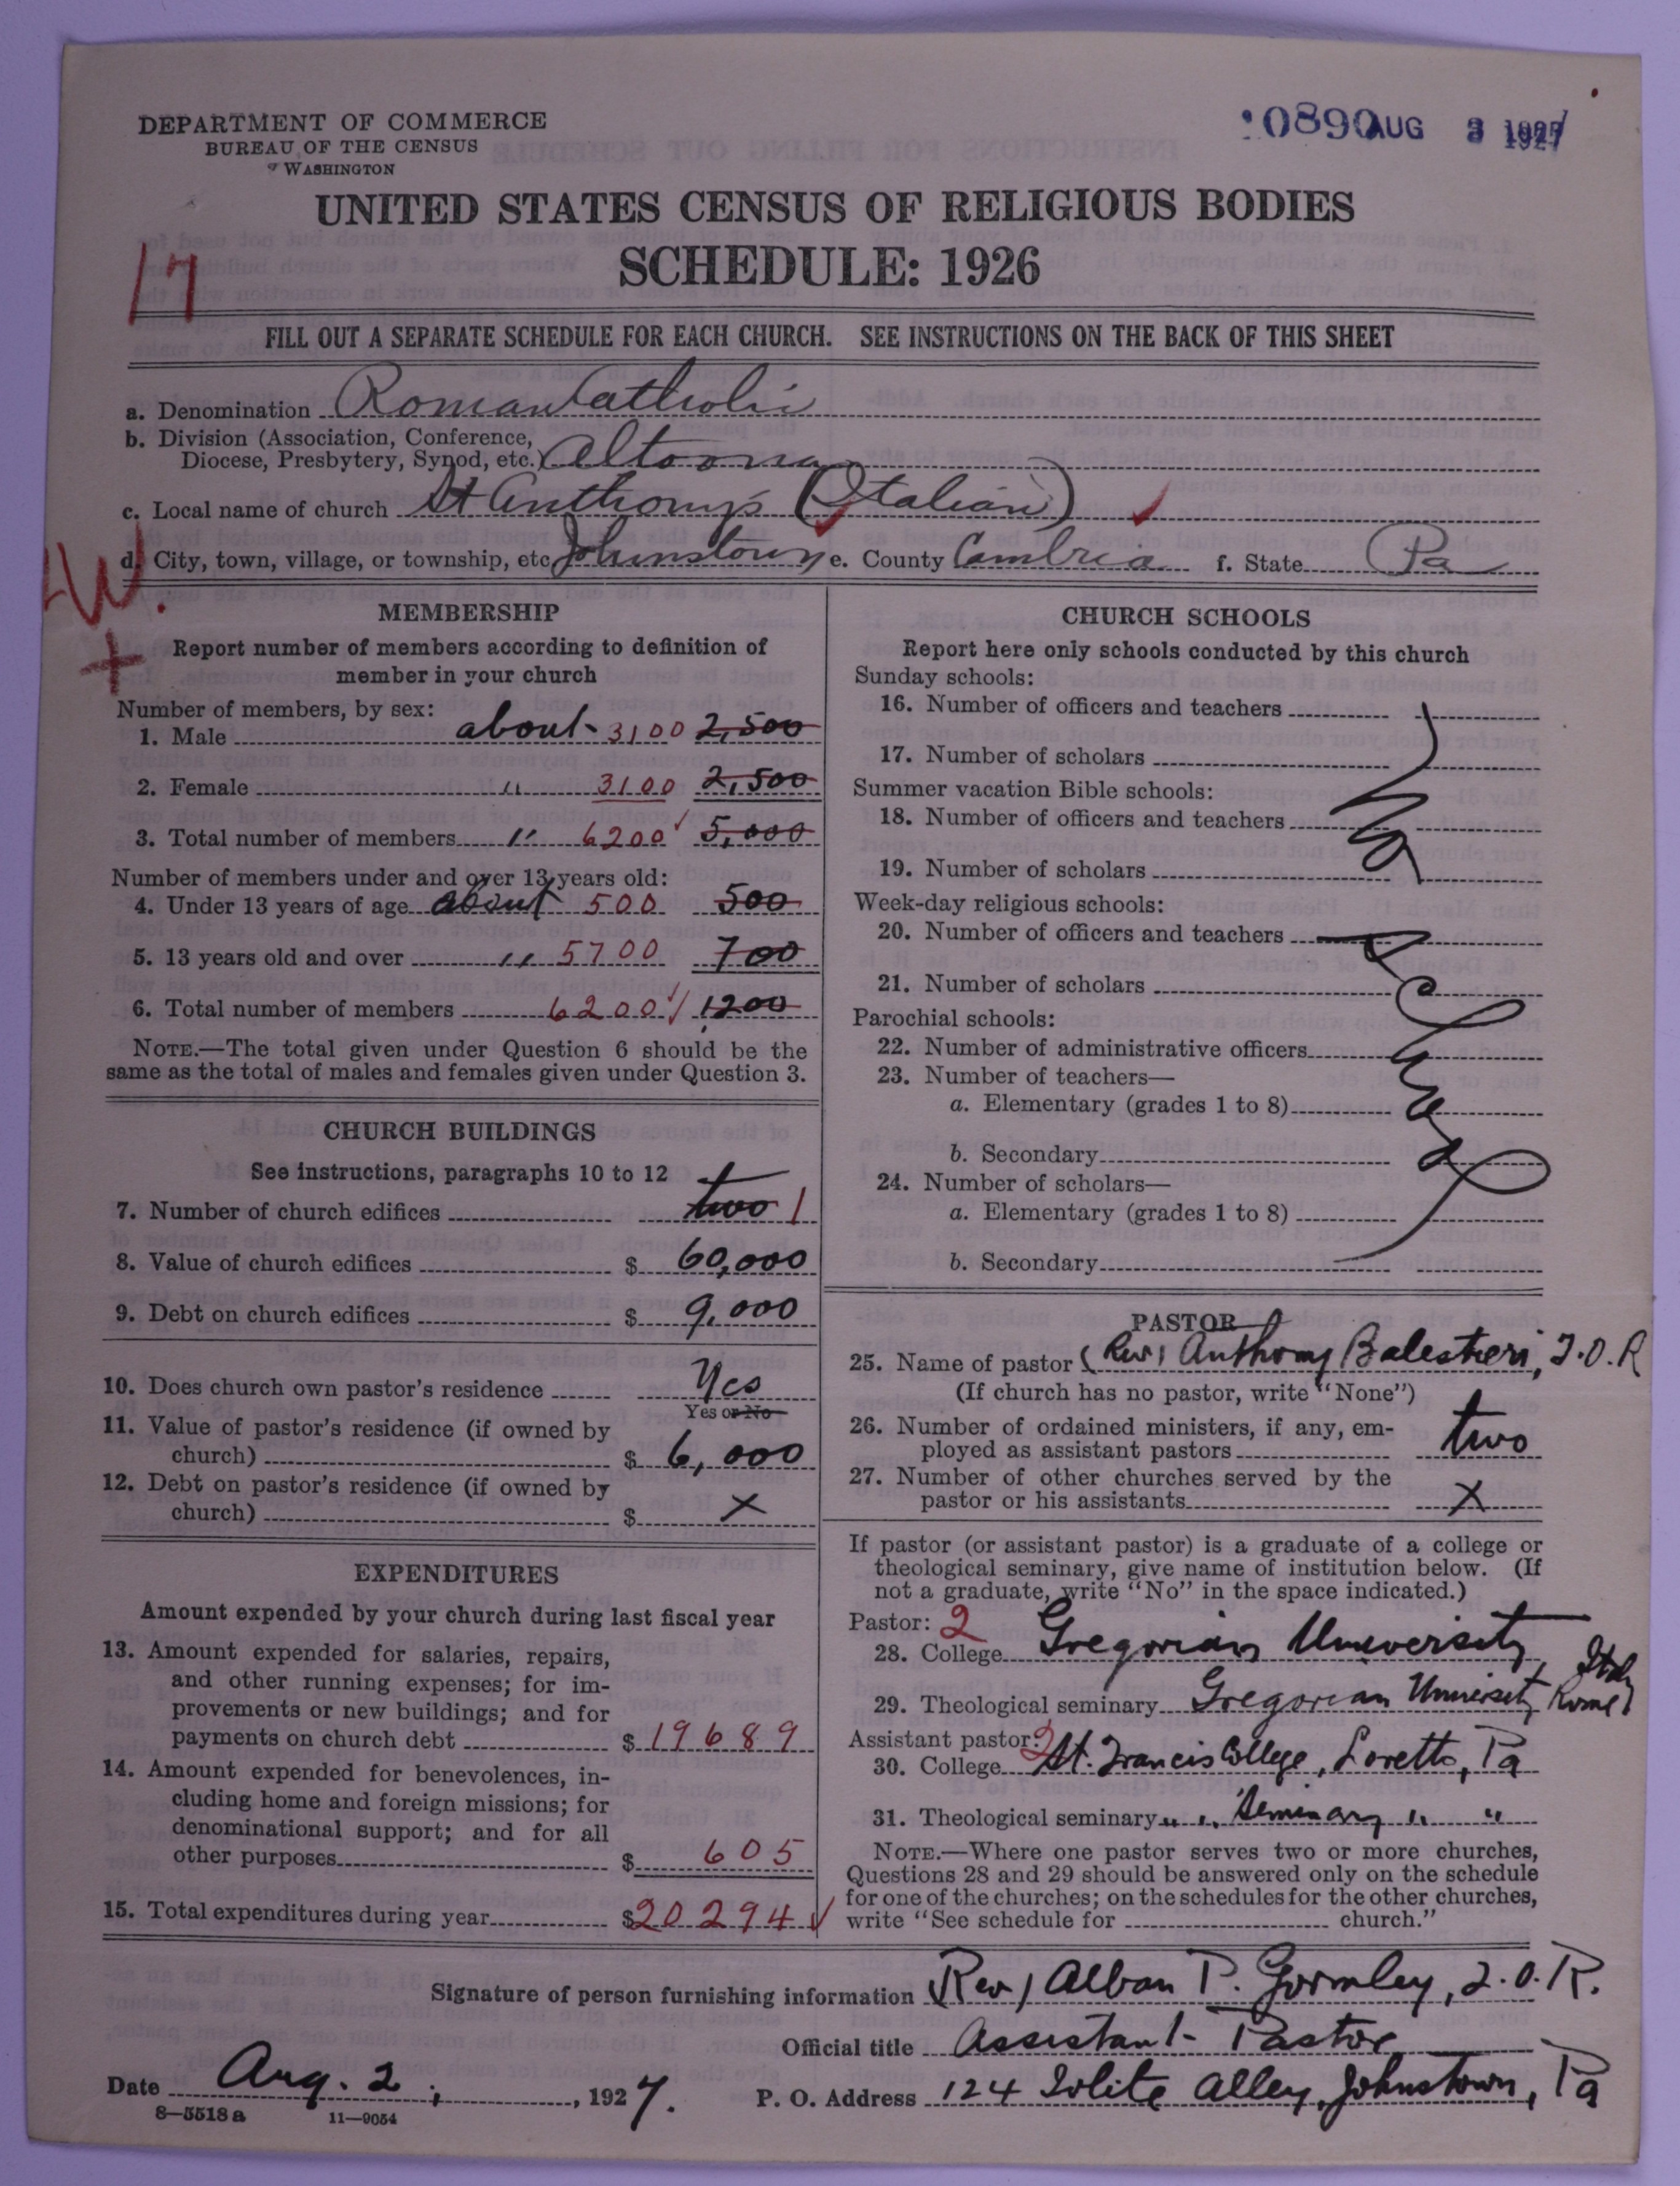 DEPARTMENT OF COMMERCE
BUREAU OF THE CENSUS
WASHINGTON
10890 AUG 3 1927
UNITED STATES CENSUS OF RELIGIOUS BODIES
SCHEDULE: 1926
17
FILL OUT A SEPARATE SCHEDULE FOR EACH CHURCH. SEE INSTRUCTIONS ON THE BACK OF THIS SHEET
a. Denomination Roman Catholic
b. Division (Association, Conference,
Diocese, Presbytery, Synod, etc.) Altoona
c. Local name of church St Anthony's (Italian)
d. City, town, village, or township, etc Johnstown e. County Cambria f. State Pa
W.
+
MEMBERSHIP
Report number of members according to definition of
member in your church
Number of members, by sex:
1. Male about 3100 2,500
2. Female " 3100 2,500
3. Total number of members " 6200 √ 5,000
Number of members under and over 13 years old:
4. Under 13 years of age about 500 500
5. 13 years old and over " 5700 700
6. Total number of members 6200 √ 1200
NOTE.—The total given under Question 6 should be the
same as the total of males and females given under Question 3.
CHURCH BUILDINGS
See instructions, paragraphs 10 to 12
7. Number of church edifices two 1
8. Value of church edifices $ 60,000
9. Debt on church edifices $ 9,000
10. Does church own pastor's residence Yes
Yes or No
11. Value of pastor's residence (if owned by
church) $ 6,000
12. Debt on pastor's residence (if owned by
church) $ X
EXPENDITURES
Amount expended by your church during last fiscal year
13. Amount expended for salaries, repairs,
and other running expenses; for im-
provements or new buildings; and for
payments on church debt $ 19689
14. Amount expended for benevolences, in-
cluding home and foreign missions; for
denominational support; and for all
other purposes $ 605
15. Total expenditures during year $20294 √
CHURCH SCHOOLS
Report here only schools conducted by this church
Sunday schools:
16. Number of officers and teachers
17. Number of scholars
Summer vacation Bible schools:
18. Number of officers and teachers
19. Number of scholars
Week-day religious schools:
20. Number of officers and teachers
21. Number of scholars
Parochial schools:
22. Number of administrative officers
23. Number of teachers—
a. Elementary (grades 1 to 8)
b. Secondary
24. Number of scholars—
a. Elementary (grades 1 to 8)
b. Secondary
No School
PASTOR
25. Name of pastor (Rev) Anthony Balestieri, T.O.R
(If church has no pastor, write "None")
26. Number of ordained ministers, if any, em-
ployed as assistant pastors two
27. Number of other churches served by the
pastor or his assistants X
If pastor (or assistant pastor) is a graduate of a college or
theological seminary, give name of institution below. (If
not a graduate, write "No" in the space indicated.)
Pastor: 2
28. College Gregorian University
29. Theological seminary Gregorian University, Rome, Italy
Assistant pastor: 2
30. College St. Francis College, Loretto, Pa
31. Theological seminary " " Seminary " "
NOTE.—Where one pastor serves two or more churches,
Questions 28 and 29 should be answered only on the schedule
for one of the churches; on the schedules for the other churches,
write "See schedule for church."
Signature of person furnishing information (Rev) Alban P. Gormley, T.O.R.
Official title Assistant Pastor
Date Aug. 2, 1927. P. O. Address 124 Alley, Johnstown, Pa
8—5518 a 11—9054